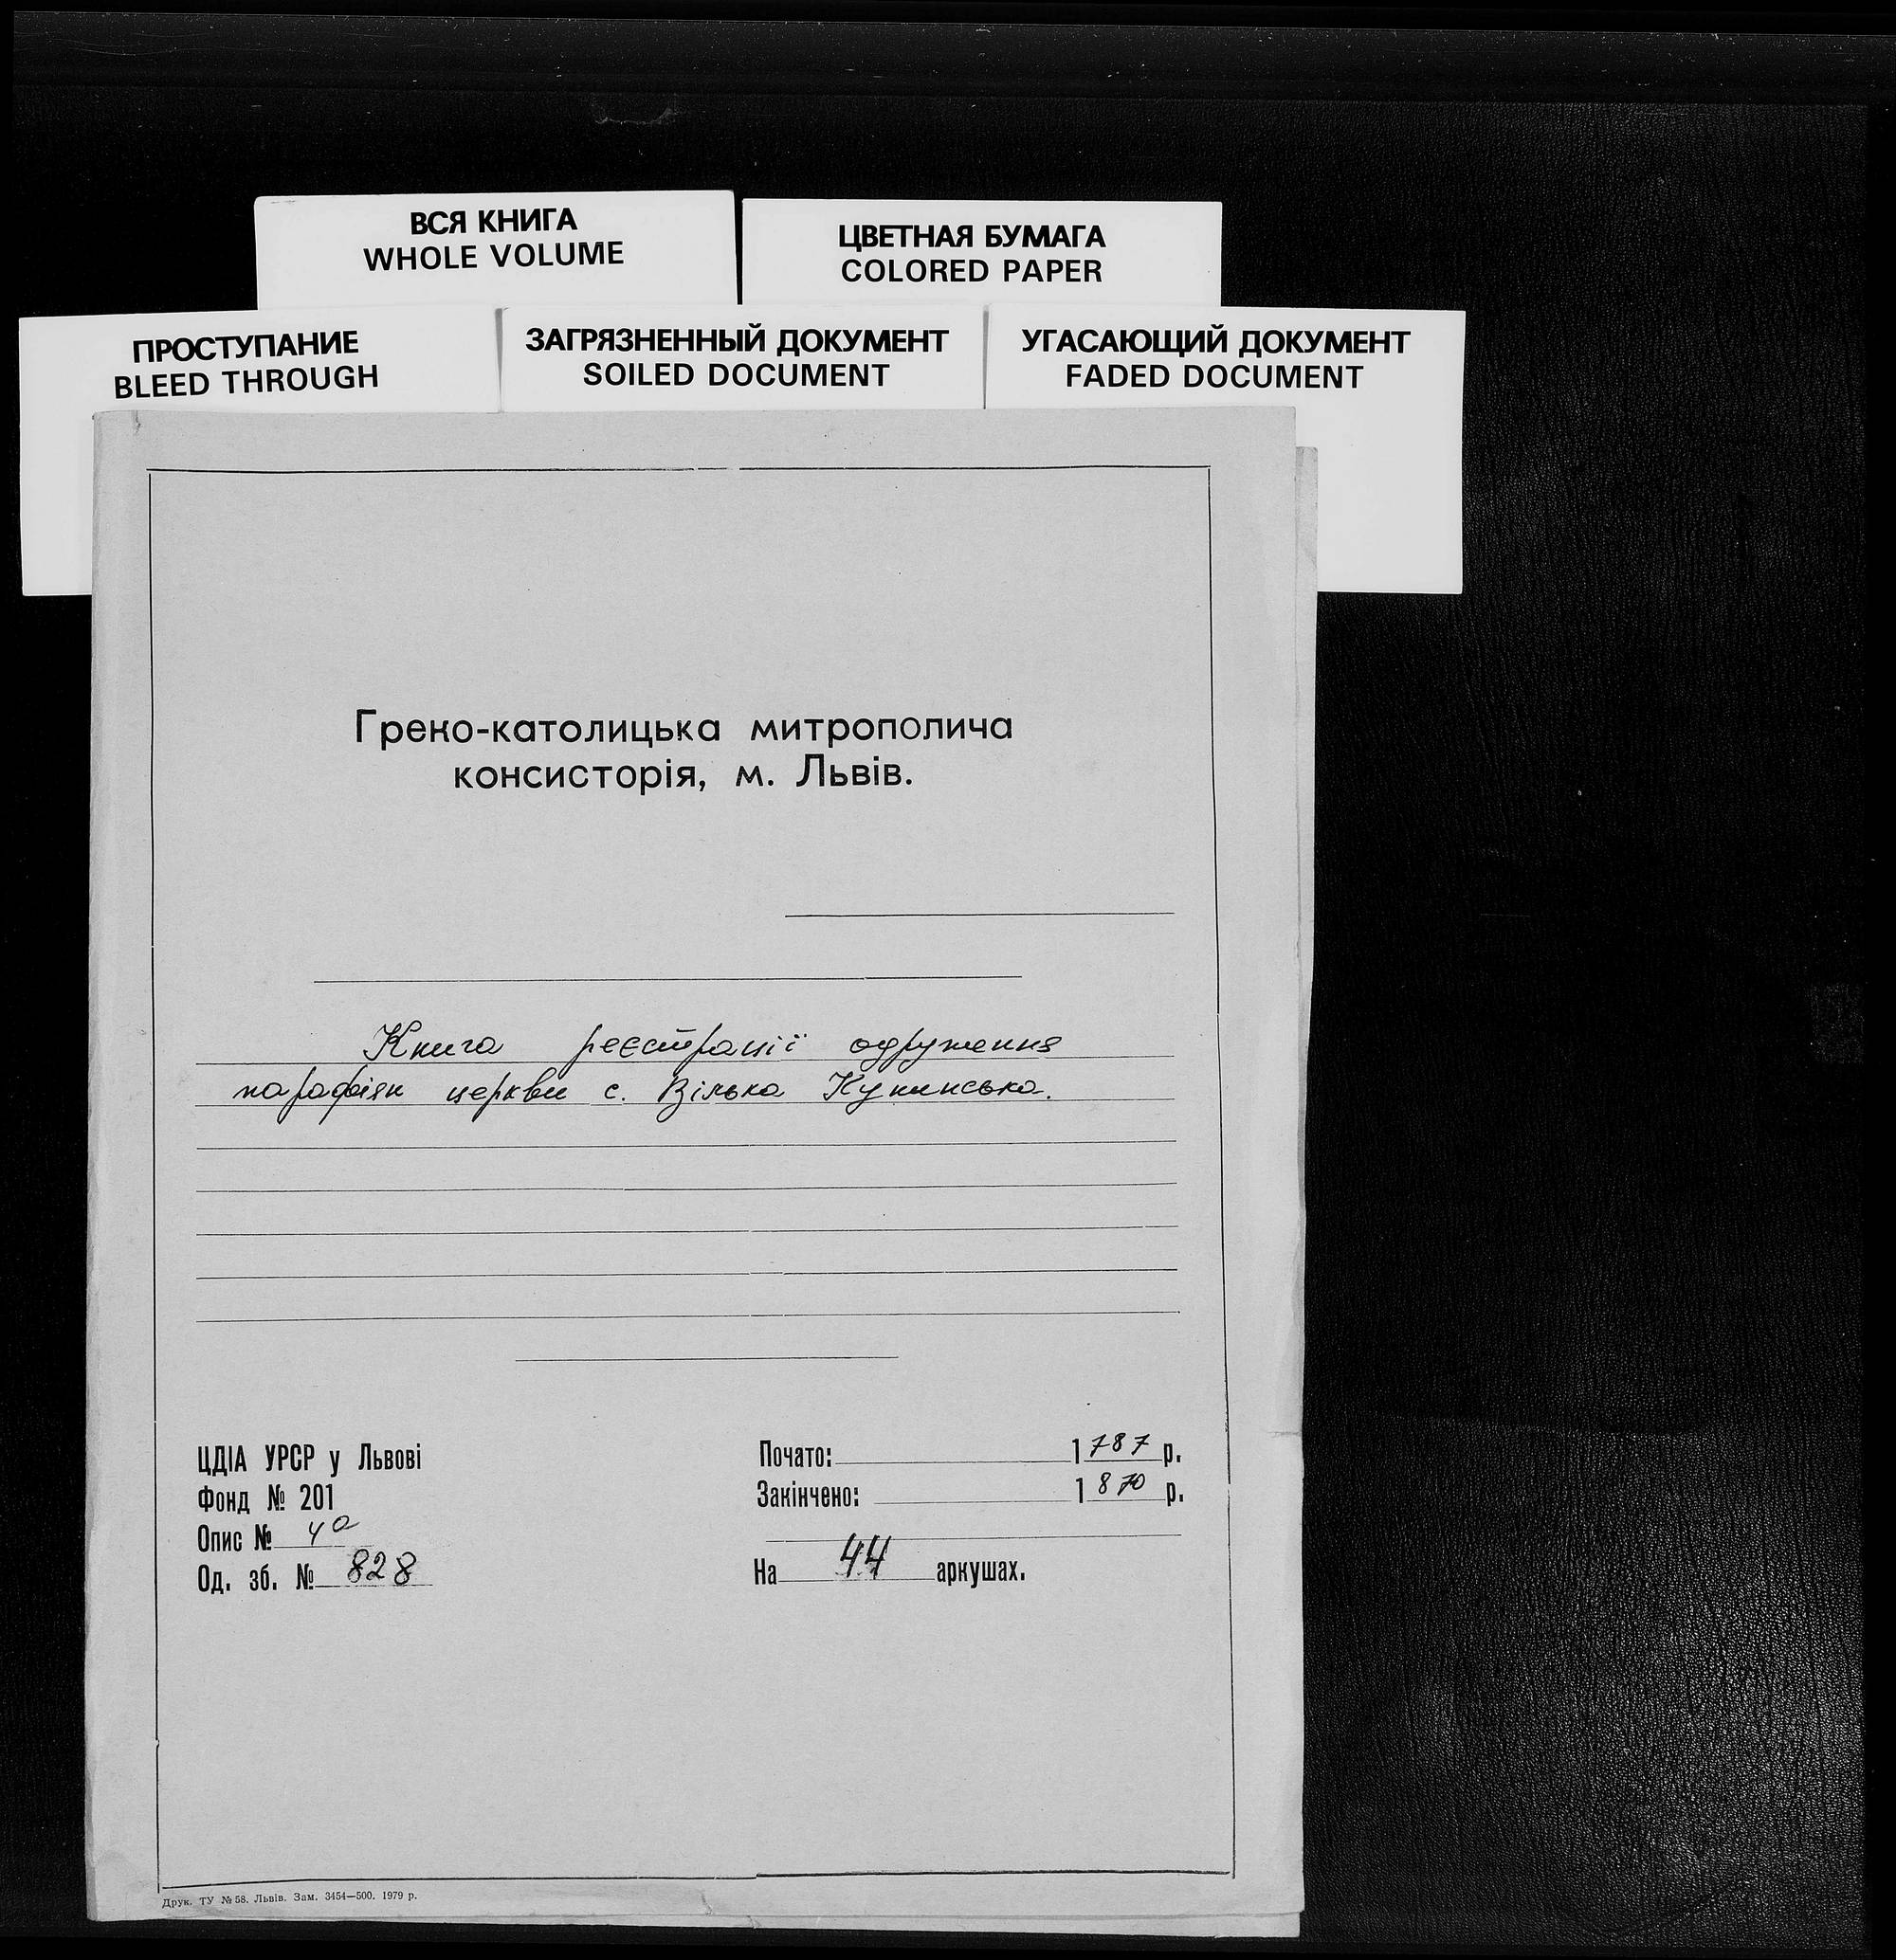 ВСЯ КНИГА
WHOLE VOLUME
ЦВЕТНАЯ БУМАГА
COLORED PAPER
ПРОСТУПАНИЕ
BLEED THROUGH
ЗАГРЯЗНЕННЫЙ ДОКУМЕНТ
SOILED DOCUMENT
УГАСАЮЩИЙ ДОКУМЕНТ
FADED DOCUMENT
Греко-католицька митрополича
консисторія, м. Львів.
Книга реєстрації одруження
парафіян церкви с. Вілька Кунинська.
ЦДІА УРСР у Львові
Фонд № 201
Опис № 4а
Од. зб. № 828
Почато: 1787 р.
Закінчено: 1870 р.
На 44 аркушах.
Друк. ТУ №58. Львів. Зам. 3454—500. 1979 р.